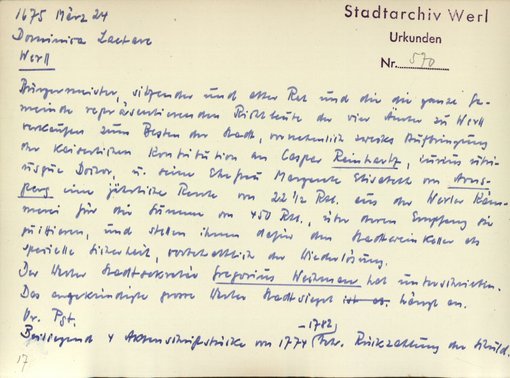 1675 März 24
Dominica Laetare
Werl
Stadtarchiv Werl
Urkunden
Nr. 570
Bürgermeister, sitzender und alter Rat und die die ganze Ge-
meinde repräsentierenden Richtleute der vier Ämter zu Werl
verkaufen zum Besten der Stadt, vornehmlich zwecks Aufbringung
der Kaiserlichen Kontribution an Caspar Reinhartz, iuris utri-
usque Doctor, u. seine Ehefrau Margarete Elisabeth von Arns-
perg eine jährliche Rente von 22 1/2 Rtl. aus der Werler Käm-
merei für die Summe von 450 Rtl., über deren Empfang sie
quittieren, und stellen ihnen dafür den Stadtweinkeller als
spezielle Sicherheit, vorbehaltlich der Wiederlösung.
Der Werler Stadtsekretär Gregorius Weidmann hat unterschrieben.
Das angekündigte grosse Werler Stadtsiegel ist ab. hängt an.
Or. Pgt.
Beiliegend 4 Aktenschriftstücke von 1774 -1782 betr. Rückzahlung der Schuld.
17